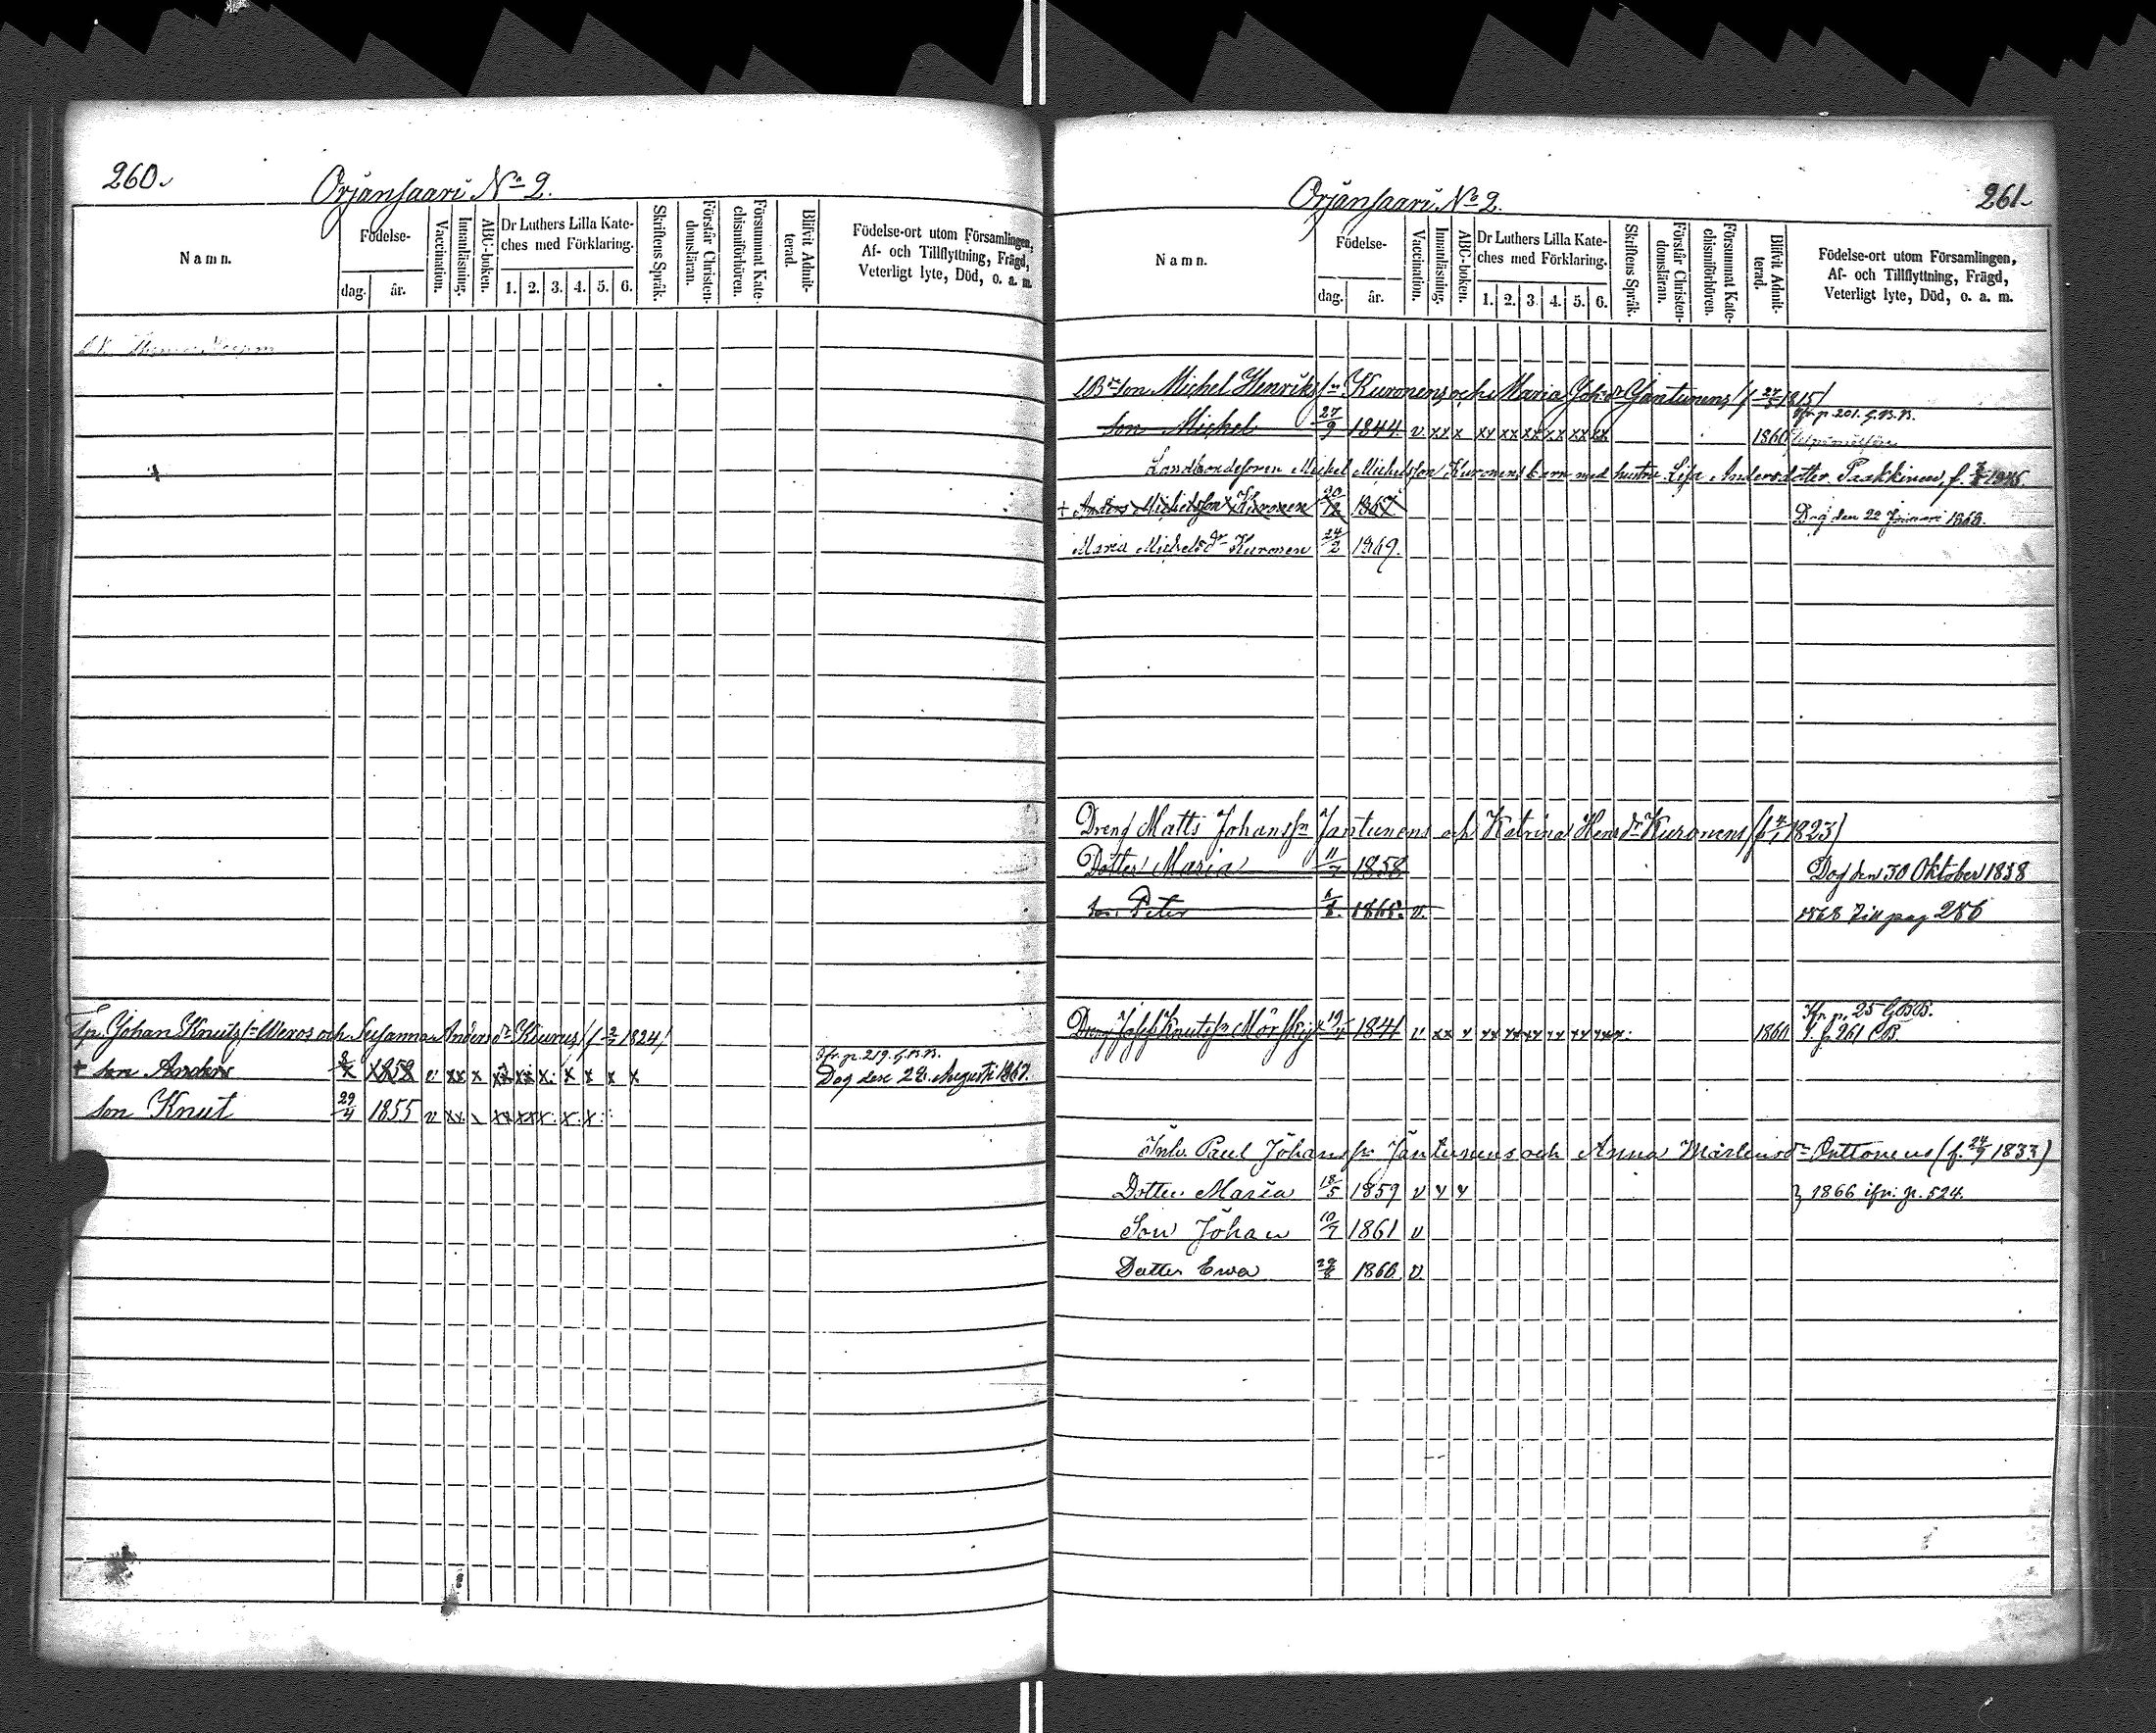 260.
Orjansaari No 2.
Namn.
Födelse-
dag.
år.
Vaccination.
Innanläsning.
ABC-boken.
Dr Luthers Lilla Kate-
ches med Förklaring.
1. 2. 3. 4. 5. 6.
Skriftens Språk.
Förstår Christen-
domsläran.
Försummat Kate-
chismiförhören.
Blifvit Admit-
terad.
Födelse-ort utom Församlingen,
Af- och Tillflyttning, Frägd,
Veterligt lyte, Död, o. a. m.
Johan Knuts Susanna Anders dr Kiurus / f 2/2 1824 /
Ifr. p. 219. G.B.B.
+ son Anders 1852 v xx x Dog den 28 Augusti 1867.
son Knut 29/4 1855 v xx x xx xx x: x: x:
Orjansaari No 2.
261.
Namn.
Födelse-
dag.
år.
Vaccination.
Innanläsning.
ABC-boken.
Dr Luthers Lilla Kate-
ches med Förklaring.
1. 2. 3. 4. 5. 6.
Skriftens Språk.
Förstår Christen-
domsläran.
Försummat Kate-
chismiförhören.
Blifvit Admit-
terad.
Födelse-ort utom Församlingen,
Af- och Tillflyttning, Frägd,
Veterligt lyte, Död, o. a. m.
son Michel Henriks Kuronens och Maria Joh: dr Jantunens / 1815 /
Ifr. p. 201. G.B.B.
son Michel 27/9 1844 v. xx x xx xx xx xx xx xx 1860
Landbondesonen Michel Michelsson Kuronens barn med hustru Lisa Andersdotter Paakkinen f.
+ Anders Michelsson Kuronen 20/12 1867 Dog den 22 Januari 1868.
Maria Michelsdr Kuronen 24/2 1869.
Dreng Matts Johansn Jantunens och Katrina Hens dr Kuronens / f 4/1 1823 /
Dotter Maria 11/7 1858 Dog den 30 Oktober 1858
son Peter v. 1868 till pag 286
Ifr. p. 25 G.B.B.
Dreng Josef Knutsn 1841 v xx x xx xx xx xx xx 1860
Paul Johans sn Jantunens och Anna Mårtensdr Outtonens (f. 24/9 1833)
Dotter Maria 18/5 1859 v x x 1866 ifr. p. 524.
Son Johan 10/7 1861 v
Dotter Ewa 1866 v.